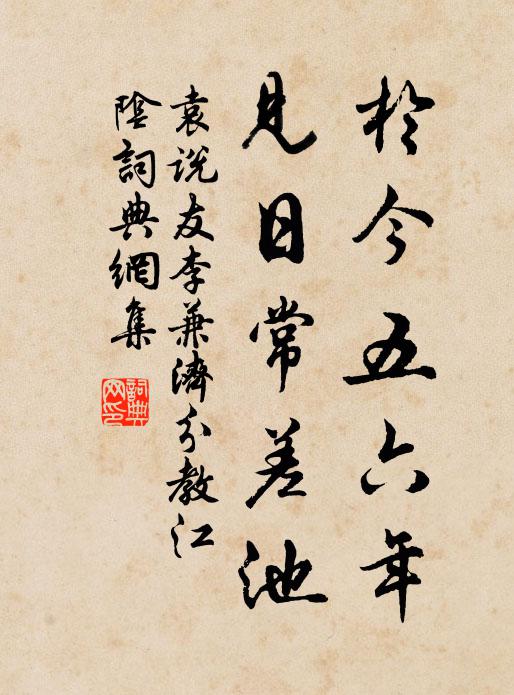 於今五六年
見日常差池
袁說友李兼濟分教江
陰詞典網集
詞典網印